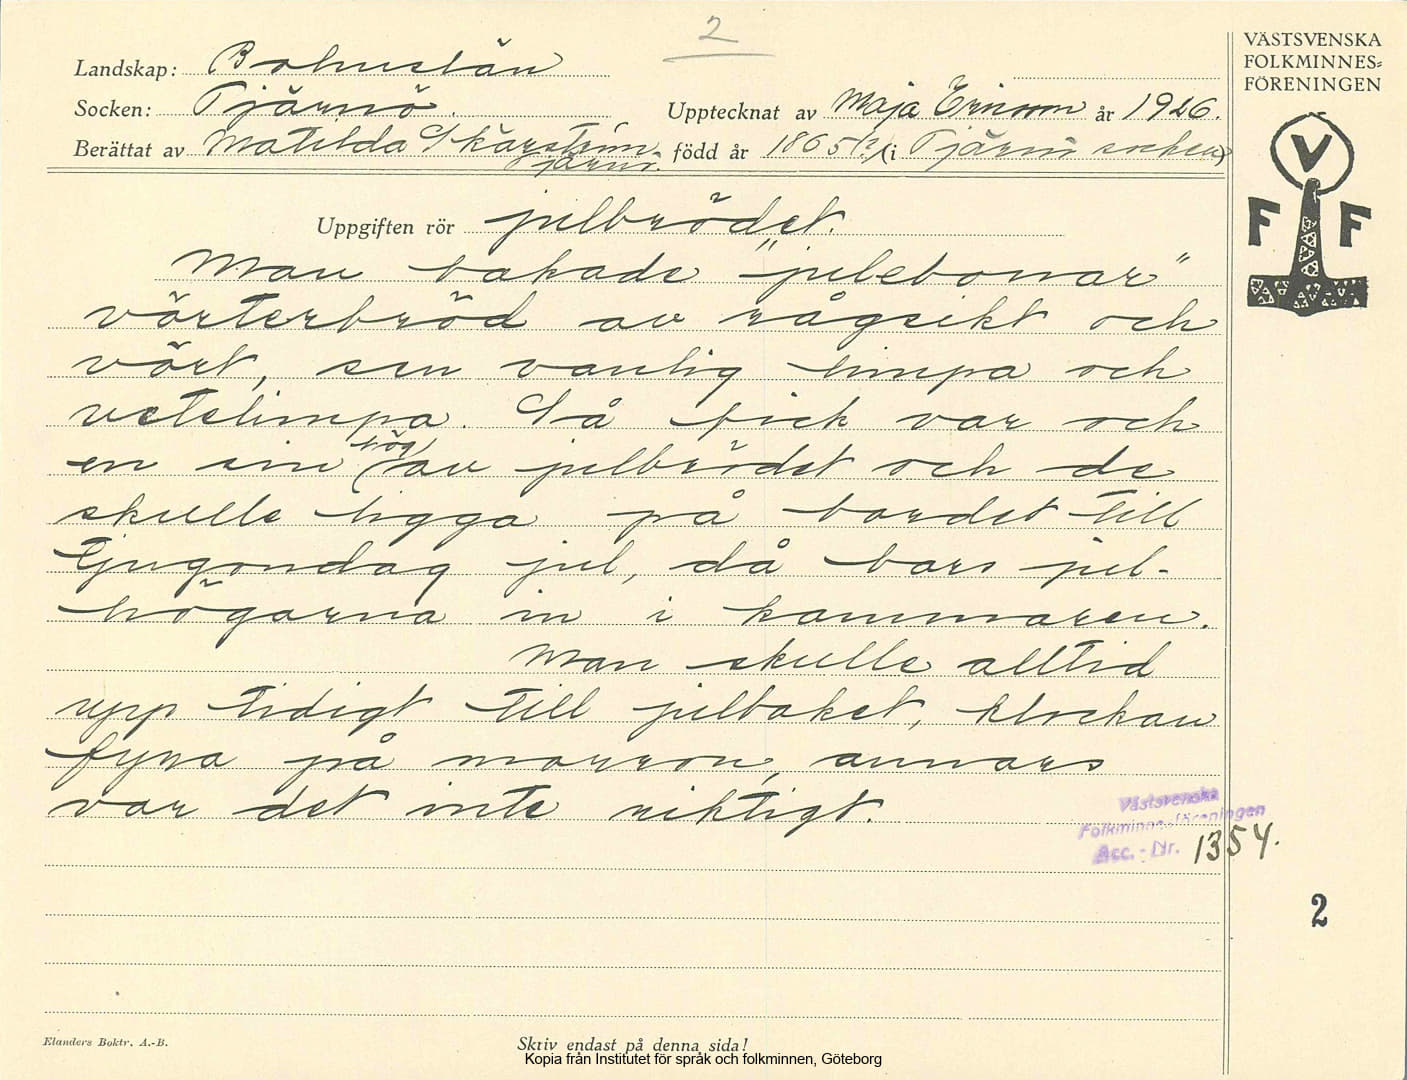 2
VÄSTSVENSKA
FOLKMINNES=
FÖRENINGEN
Landskap: Bohuslän
Socken: Tjärnö.
Upptecknat av Maja Ericson år 1926.
Berättat av Matilda Skärström, Tjärnö. född år 1865 (i Tjärnö socken)
V
F F
Uppgiften rör julbrödet.
Man bakade "julebonnar"
vörterbröd av rågsikt och
vört, sen vanlig limpa och
vetelimpa. Så fick var och
en sin hög av julbrödet och de
skulle ligga på bordet till
Tjugondag jul, då bars jul-
högarna in i kammaren.
Man skulle alltid
upp tidigt till julbaket, klockan
fyra på morron, annars
var det inte riktigt.
Västsvenska
Folkminnesföreningen
Acc. - Nr. 1354.
2
Elanders Boktr. A.-B.
Skriv endast på denna sida!
Kopia från Institutet för språk och folkminnen, Göteborg